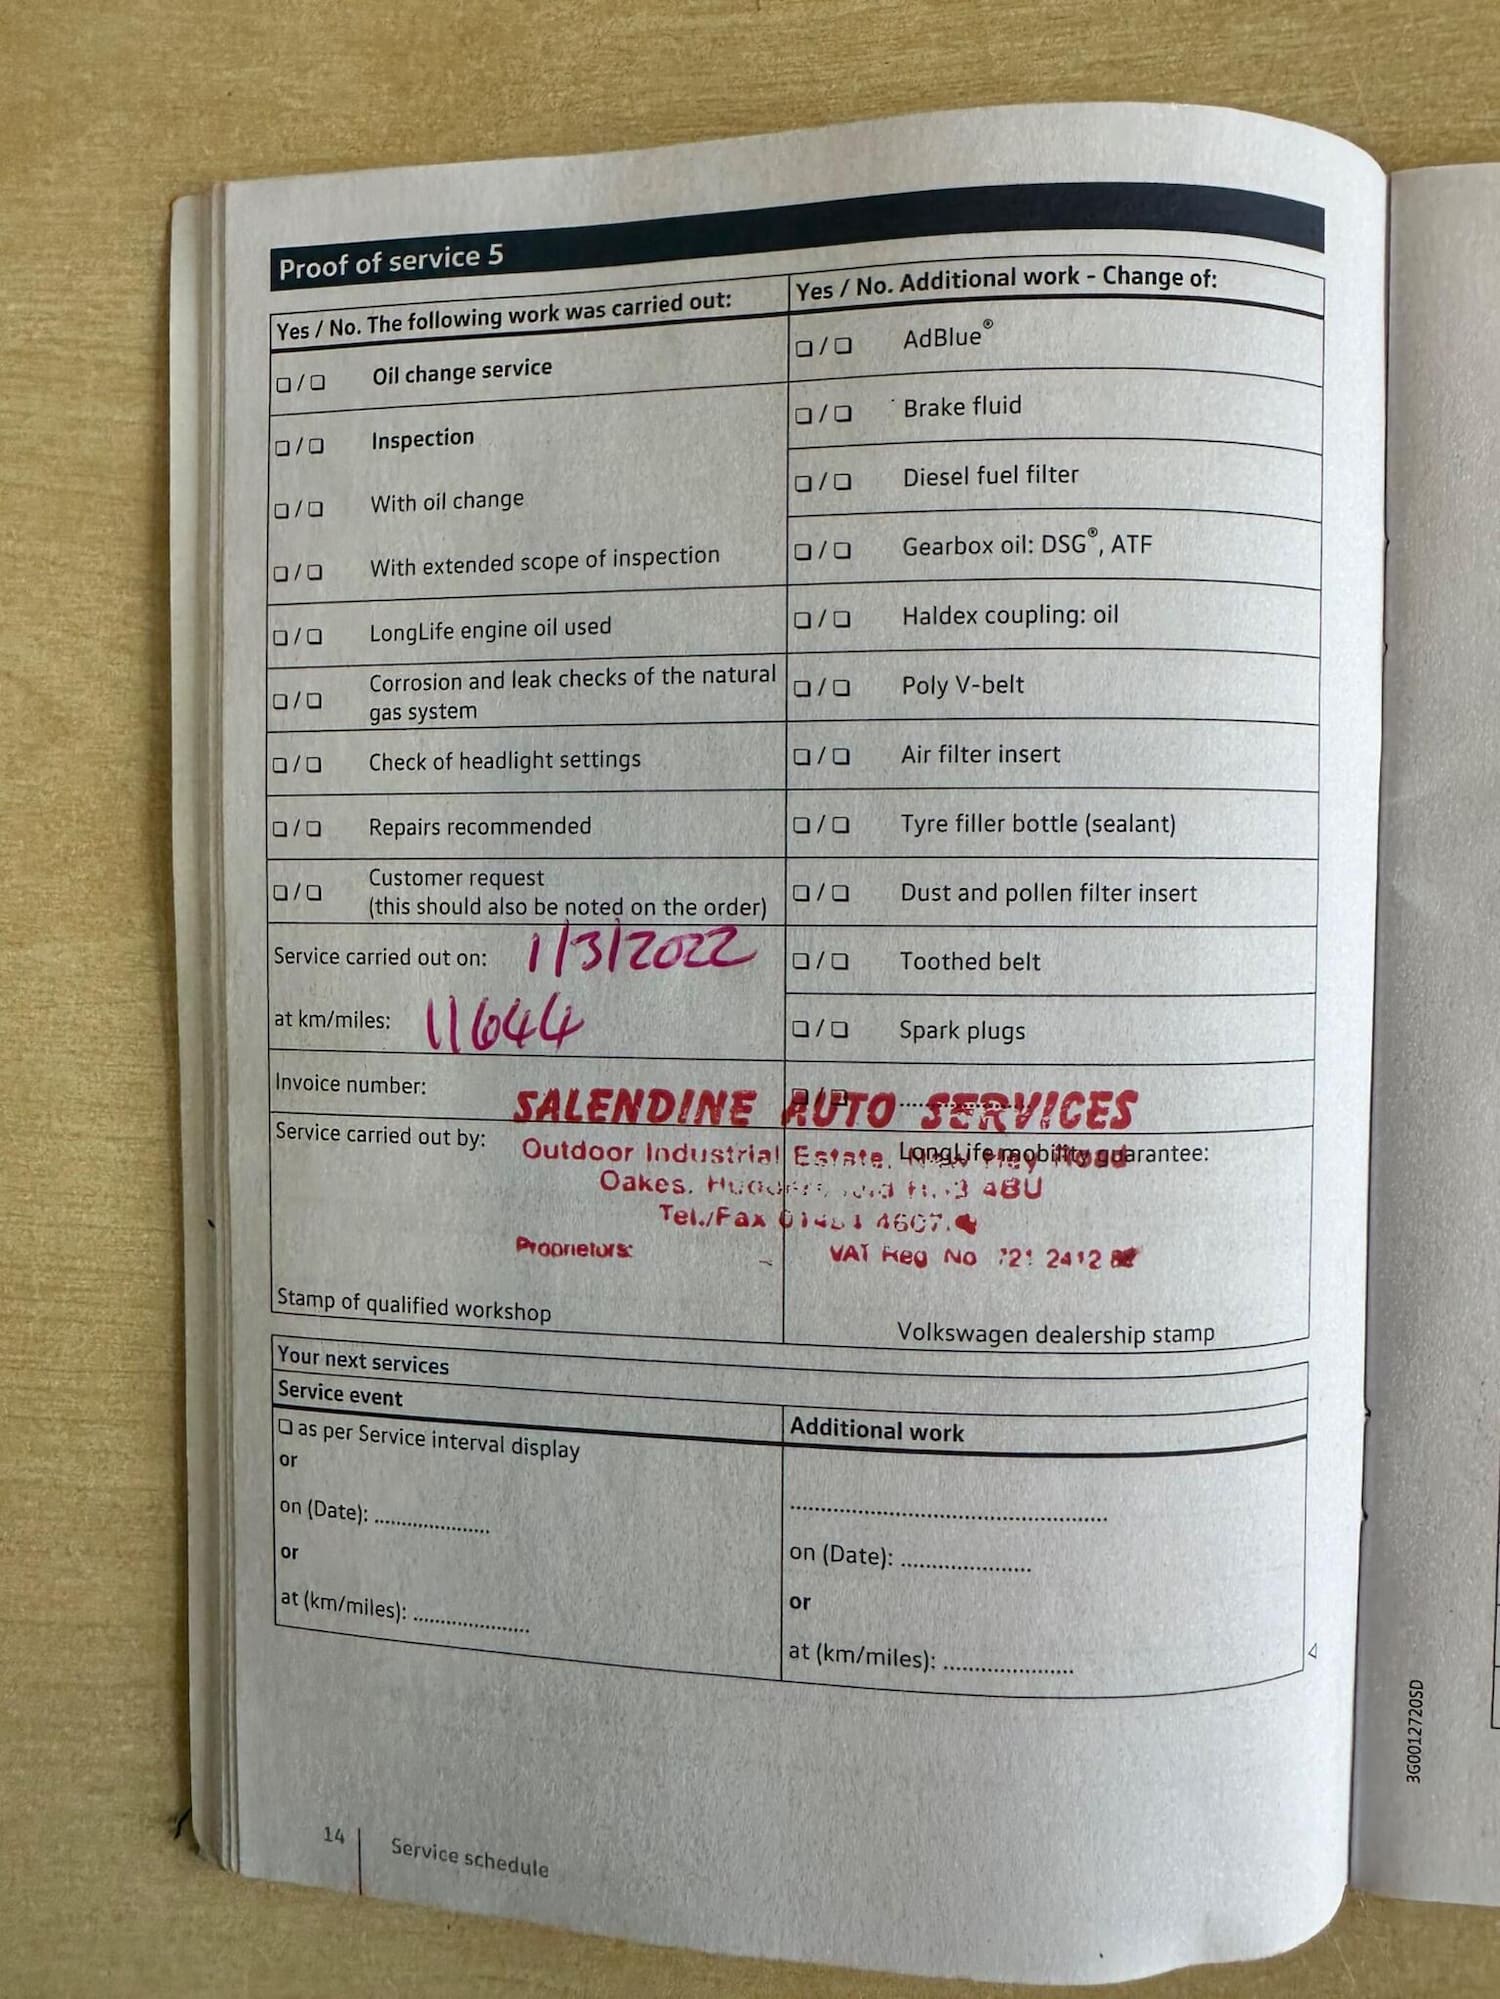 Proof of service 5
Yes / No. The following work was carried out:
❏ / ❏ Oil change service
❏ / ❏ Inspection
❏ / ❏ With oil change
❏ / ❏ With extended scope of inspection
❏ / ❏ LongLife engine oil used
❏ / ❏ Corrosion and leak checks of the natural
gas system
❏ / ❏ Check of headlight settings
❏ / ❏ Repairs recommended
❏ / ❏ Customer request
(this should also be noted on the order)
Service carried out on: 1/3/2022
at km/miles: 11644
Invoice number:
Service carried out by:
Stamp of qualified workshop
Yes / No. Additional work - Change of:
❏ / ❏ AdBlue®
❏ / ❏ Brake fluid
❏ / ❏ Diesel fuel filter
❏ / ❏ Gearbox oil: DSG®, ATF
❏ / ❏ Haldex coupling: oil
❏ / ❏ Poly V-belt
❏ / ❏ Air filter insert
❏ / ❏ Tyre filler bottle (sealant)
❏ / ❏ Dust and pollen filter insert
❏ / ❏ Toothed belt
❏ / ❏ Spark plugs
❏ / ❏ ....................
LongLife mobility guarantee:
Volkswagen dealership stamp
SALENDINE AUTO SERVICES
Outdoor Industrial Estate, New Hey Road
Oakes, 4BU
Tel./Fax
Proprietors:
VAT Reg No
Your next services
Service event
❏ as per Service interval display
or
on (Date): ....................
or
at (km/miles): ....................
Additional work
....................
on (Date): ....................
or
at (km/miles): ....................
14
Service schedule
3G0012720SD